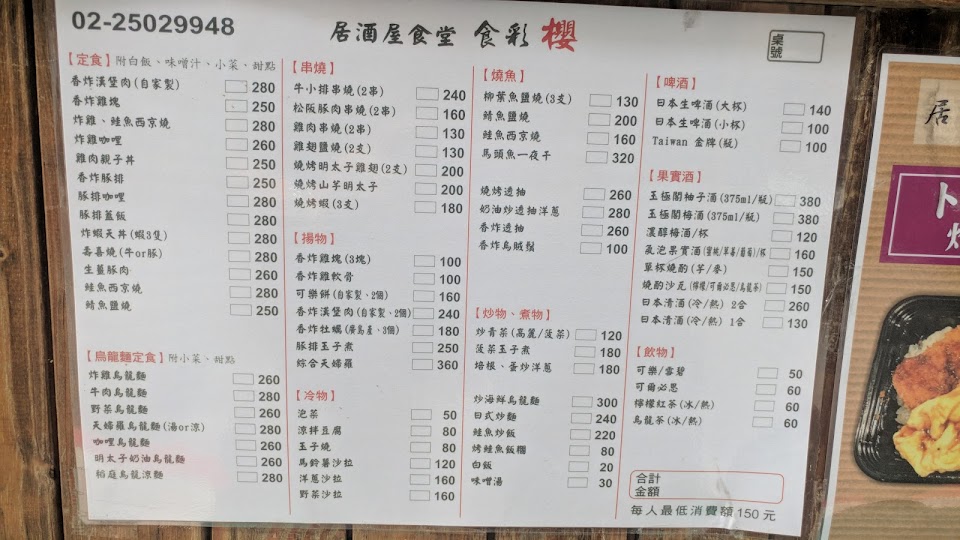 02-25029948
居酒屋食堂 食彩 櫻
桌號
【定食】附白飯、味噌汁、小菜、甜點
香炸漢堡肉(自家製) 280
香炸雞塊 250
炸雞、鮭魚西京燒 280
炸雞咖哩 260
雞肉親子丼 250
香炸豚排 250
豚排咖哩 280
豚排蓋飯 280
炸蝦天丼(蝦3隻) 280
壽喜燒(牛or豚) 280
生薑豚肉 260
鮭魚西京燒 280
鯖魚鹽燒 250
【烏龍麵定食】附小菜、甜點
炸雞烏龍麵 260
牛肉烏龍麵 280
野菜烏龍麵 260
天婦羅烏龍麵(湯or涼) 280
咖哩烏龍麵 260
明太子奶油烏龍麵 260
稻庭烏龍涼麵 280
【串燒】
牛小排串燒(2串) 240
松阪豚肉串燒(2串) 160
雞肉串燒(2串) 130
雞翅鹽燒(2支) 130
燒烤明太子雞翅(2支) 200
燒烤山芋明太子 200
燒烤蝦(3支) 180
【揚物】
香炸雞塊(3塊) 100
香炸雞軟骨 100
可樂餅(自家製、2個) 160
香炸漢堡肉(自家製、2個) 240
香炸牡蠣(廣島產、3個) 180
豚排玉子煮 250
綜合天婦羅 360
【冷物】
泡菜 50
涼拌豆腐 80
玉子燒 80
馬鈴薯沙拉 120
洋蔥沙拉 160
野菜沙拉 160
【燒魚】
柳葉魚鹽燒(3支) 130
鯖魚鹽燒 200
鮭魚西京燒 160
馬頭魚一夜干 320
燒烤透抽 260
奶油炒透抽洋蔥 280
香炸透抽 260
香炸烏賊鬚 100
【炒物、煮物】
炒青菜(高麗/菠菜) 120
菠菜玉子煮 180
培根、蛋炒洋蔥 180
炒海鮮烏龍麵 300
日式炒麵 240
鮭魚炒飯 220
烤鮭魚飯糰 80
白飯 20
味噌湯 30
【啤酒】
日本生啤酒(大杯) 140
日本生啤酒(小杯) 100
Taiwan 金牌(瓶) 100
【果實酒】
玉極閣柚子酒(375ml/瓶) 380
玉極閣梅酒(375ml/瓶) 380
濃醇梅酒/杯 120
氣泡果實酒(蜜桃/草莓/葡萄)/杯 160
單杯燒酌(芋/麥) 150
燒酌沙瓦(檸檬/可爾必思/烏龍茶) 150
日本清酒(冷/熱) 2合 260
日本清酒(冷/熱) 1合 130
【飲物】
可樂/雪碧 50
可爾必思 60
檸檬紅茶(冰/熱) 60
烏龍茶(冰/熱) 60
合計
金額
每人最低消費額150元
居